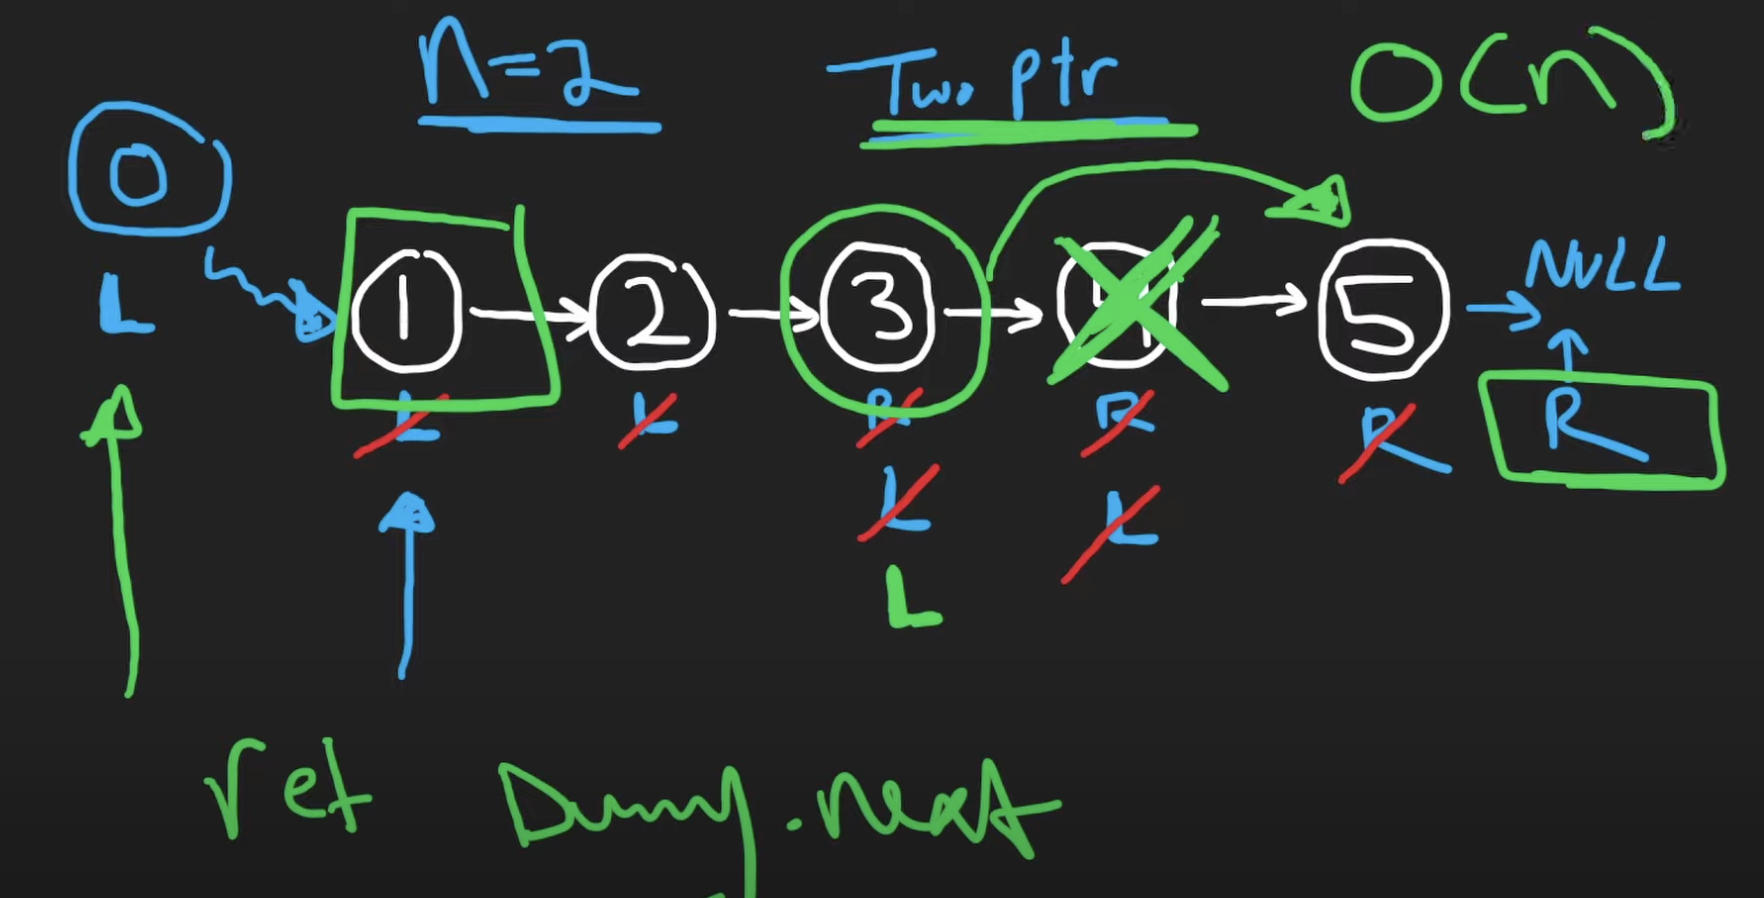 n=2 Two ptr O(n)
0
L
1 2 3 4 5 NULL
L L R R R R
L L
L
ret Dumy.next